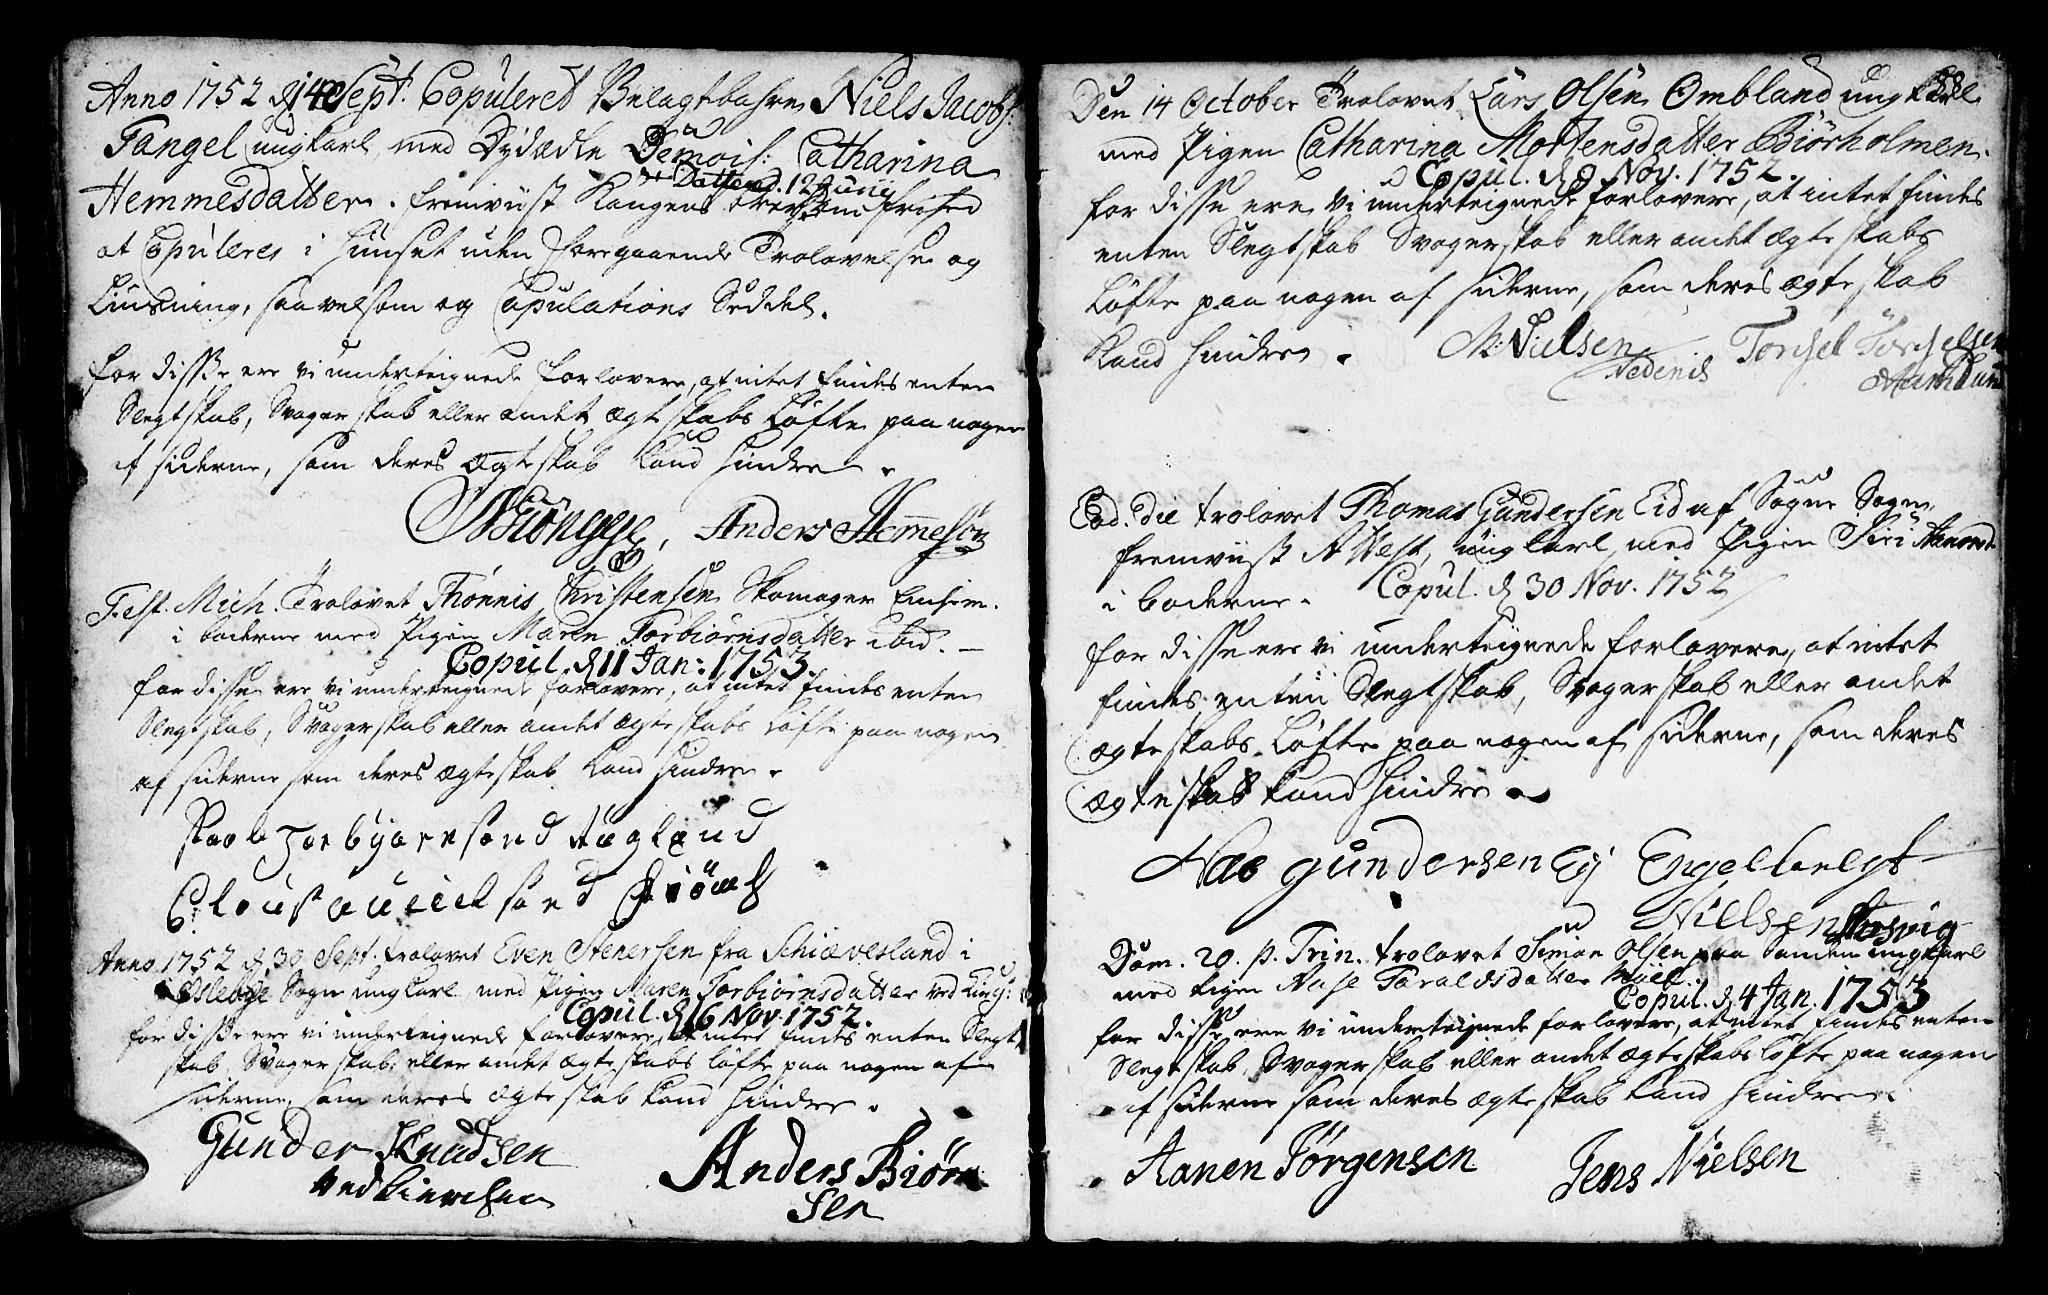 Anno 1752 d 14 Sept. Copuleret Velagtbahre Niels Jacobs:
Fangel ungkarl med Dydædle Demois: Catharina
Hemmesdatter. fremviist Kongens
Dat: d. 12 Junij
at Copuleres i Huuset uden foregaaende Trolovelse og
Liusning, saavelsom og Copulations Seddel.
for disse ere vi underteignede forlovere, at intet findes enten
Slegtskab, Svogerskab eller andet ægteskabs Løfte paa nogen
af siderne, som deres Ægteskab kand hindre.
Anders Hemmesøn
Fest. Mich. Trolovet Thønnis Christensen Skomager
i boderne med Pigen Maren Torbiørnsdatter ibid.
Copul. d 11 Jan: 1753.
for disse ere vi underteignede forlovere, at intet findes enten
Slegtskab, Svogerskab eller andet ægteskabs Løfte paa nogen
af siderne som deres ægteskab kand hindre.
Anno 1752 d 30 Sept. trolovet Even Stenersen fra Schiævesland i
Sogn ungkarl med Pigen Maren Torbiørnsdatter ved Kirch:
Copul. d 16 Nov. 1752.
for disse ere vi underteignede forlovere, at intet findes enten Slegt
skab, Svogerskab eller andet ægteskabs løfte paa nogen af
siderne, som deres ægteskab kand hindre.
Gunder Knudsen
ved Kierchen
Anders Biørn
sen
Den 14 October Trolovet Lars Olsen Ombland ungkarl
med Pigen Catharina Mortensdatter Biørholmen.
Copul. d 9 Nov. 1752.
for disse ere vi underteignede forlovere, at intet findes
enten Slegtskab Svogerskab eller andet ægteskabs
Løfte paa nogen af siderne, som deres ægteskab
kand hindre.
Nielsen
Nedenis
Torchel Torchelsen
Eod. die trolovet Thomas Gundersen Eid af Sogne Sogn,
fremviist Attest, ungkarl, med Pigen Siri
i boderne.
Copul. d 30 Nov. 1752
for disse ere vi underteignede forlovere, at intet
findes enten Slegtskab, Svogerskab eller andet
ægteskabs Løfte paa nogen af siderne, som deres
ægteskab kand hindre.
gundersen Eij
Engelbregt
Nielsen
Dom. 20. p. Trin. trolovet Simon Olsen paa Sanden ungkarl
med Pigen Aase Taraldsdatter
Copul. d 4 Jan. 1753
for disse ere vi underteignede forlovere, at intet findes enten
Slegtskab, Svogerskab eller andet ægteskabs løfte paa nogen
af siderne som deres ægteskab kand hindre.
Aanen Jørgensen
Jens Nielsen